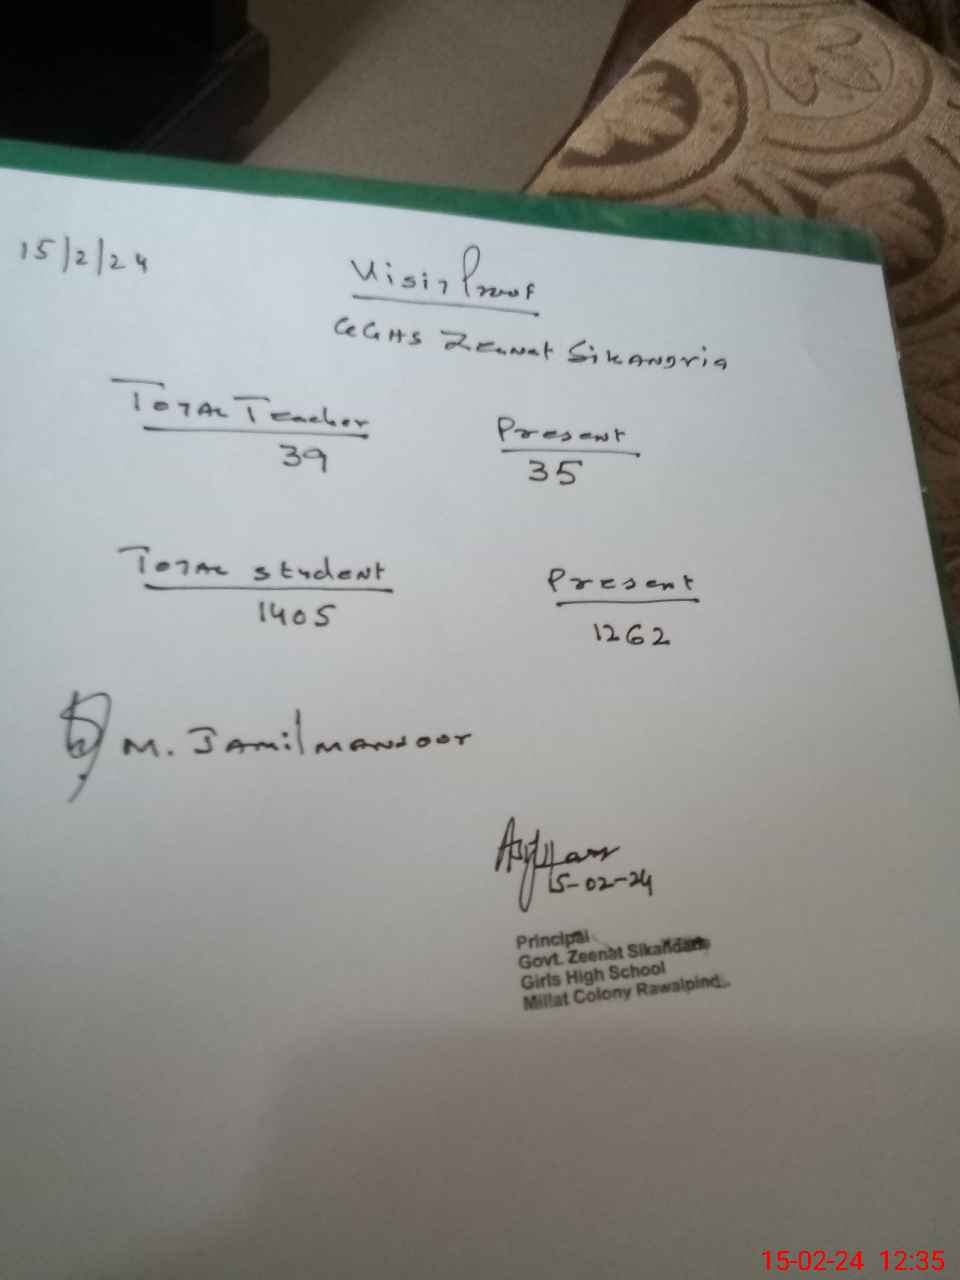 15/2/24
Visit Proof
GGHS Zeenat Sikandria
Total Teacher
39
Present
35
Total student
1405
Present
1262
M. Jamil mansoor
15-02-24
Principal
Govt. Zeenat Sikandaria
Girls High School
Millat Colony Rawalpindi.
15-02-24 12:35